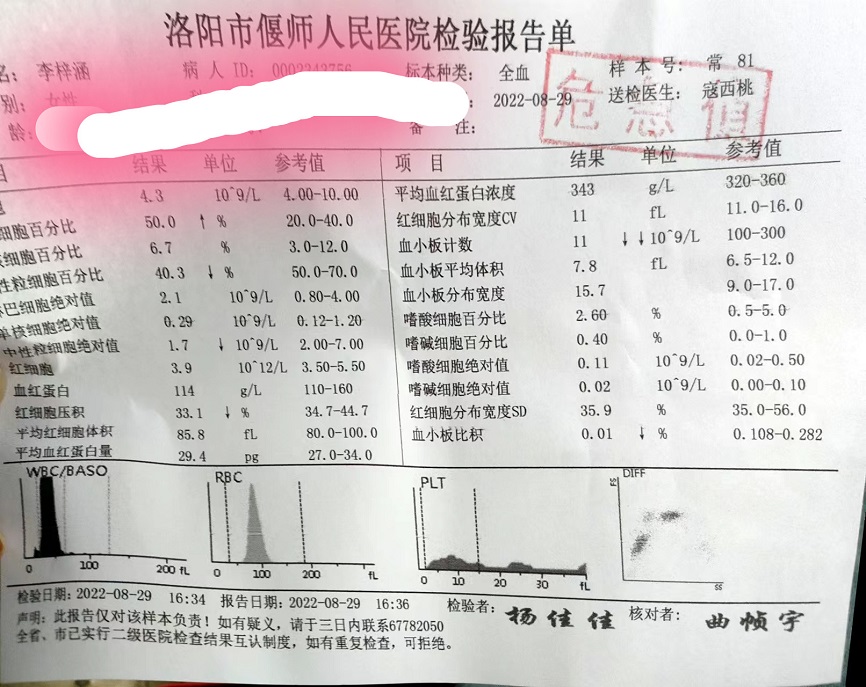 洛阳市偃师人民医院检验报告单
名: 李梓涵 病人ID: 0002343756 标本种类: 全血 样本号: 常 81
别: 女性 2022-08-29 送检医生: 寇西桃
龄: 备 注:
危急值
目 结果 单位 参考值 项 目 结果 单位 参考值
4.3 10^9/L 4.00-10.00 平均血红蛋白浓度 343 g/L 320-360
细胞百分比 50.0 ↑ % 20.0-40.0 红细胞分布宽度CV 11 fL 11.0-16.0
细胞百分比 6.7 % 3.0-12.0 血小板计数 11 ↓↓ 10^9/L 100-300
性粒细胞百分比 40.3 ↓ % 50.0-70.0 血小板平均体积 7.8 fL 6.5-12.0
巴细胞绝对值 2.1 10^9/L 0.80-4.00 血小板分布宽度 15.7 9.0-17.0
单核细胞绝对值 0.29 10^9/L 0.12-1.20 嗜酸细胞百分比 2.60 % 0.5-5.0
中性粒细胞绝对值 1.7 ↓ 10^9/L 2.00-7.00 嗜碱细胞百分比 0.40 % 0.0-1.0
红细胞 3.9 10^12/L 3.50-5.50 嗜酸细胞绝对值 0.11 10^9/L 0.02-0.50
血红蛋白 114 g/L 110-160 嗜碱细胞绝对值 0.02 10^9/L 0.00-0.10
红细胞压积 33.1 ↓ % 34.7-44.7 红细胞分布宽度SD 35.9 % 35.0-56.0
平均红细胞体积 85.8 fL 80.0-100.0 血小板比积 0.01 ↓ % 0.108-0.282
平均血红蛋白量 29.4 pg 27.0-34.0
WBC/BASO RBC PLT DIFF
0 100 200 fL 0 100 200 fL 0 10 20 30 fL SS
检验日期: 2022-08-29 16:34 报告日期: 2022-08-29 16:36 检验者: 杨佳佳 核对者: 曲帧宇
声明: 此报告仅对该样本负责! 如有疑义, 请于三日内联系67782050
全省、市已实行二级医院检查结果互认制度, 如有重复检查, 可拒绝。